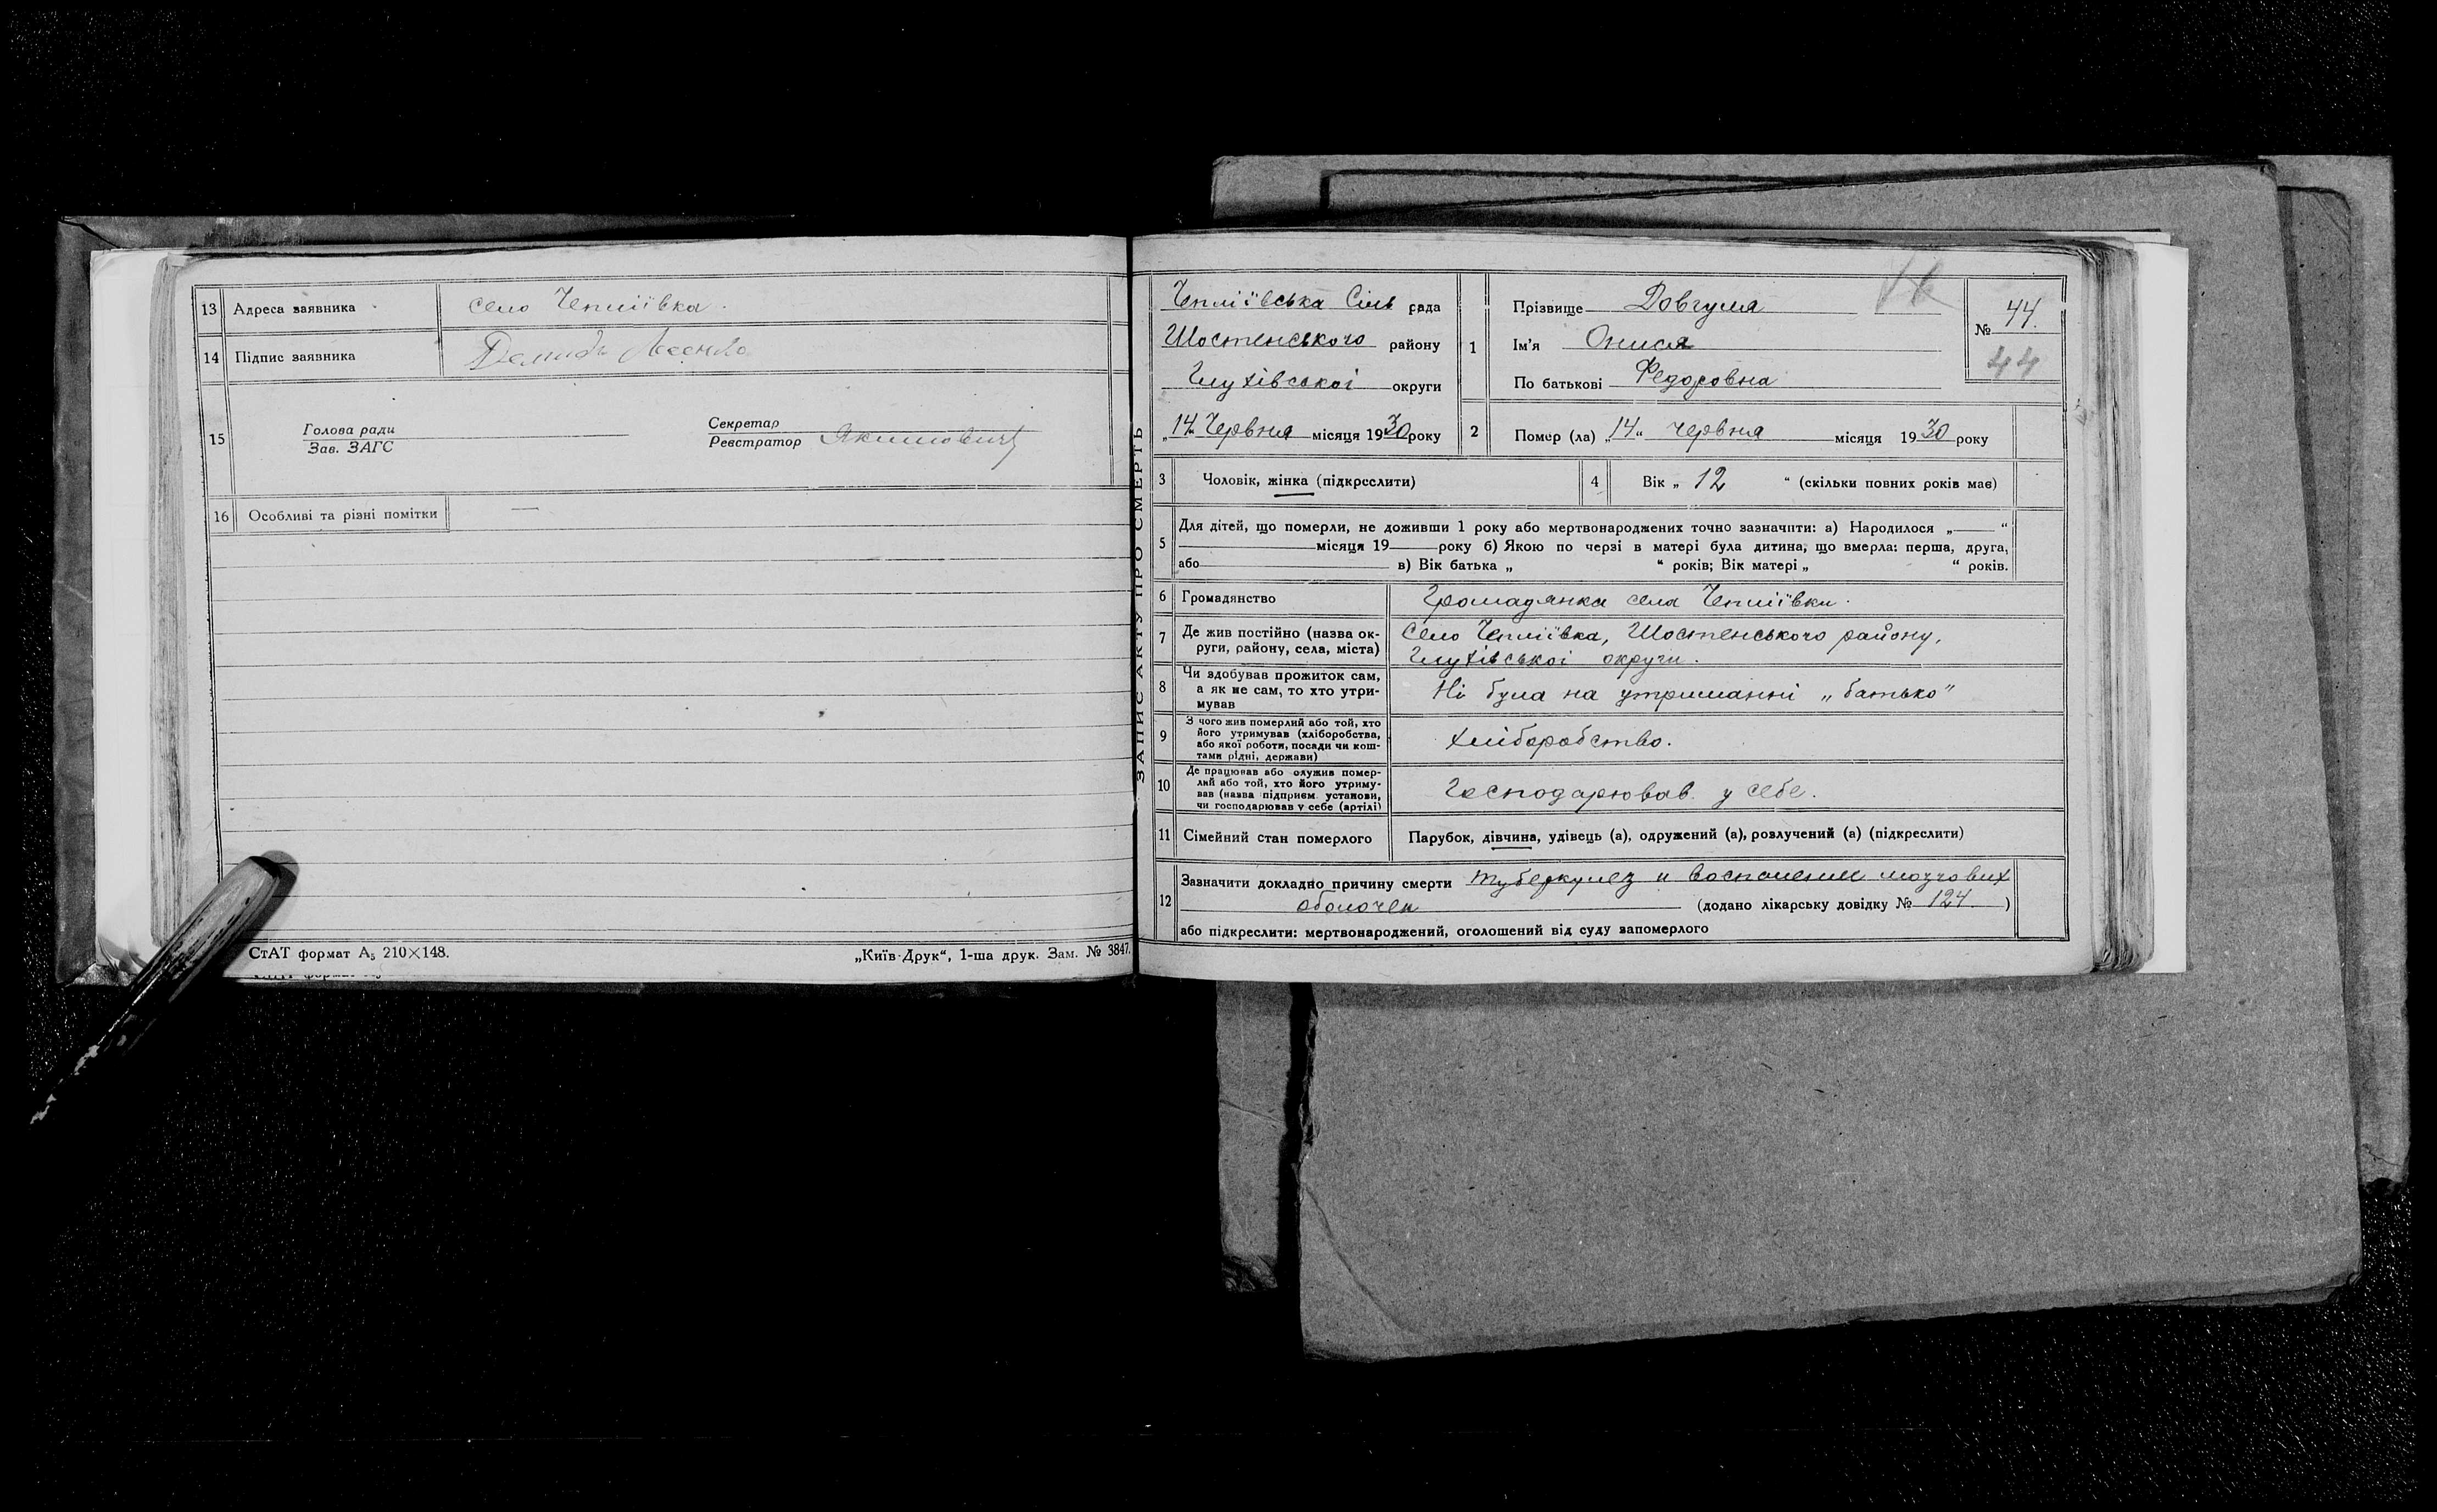 13 Адреса заявника село Чепліївка.
14 Підпис заявника Демид
15 Голова ради
Зав. ЗАГС
Секретар
Реєстратор Якимович
16 Особливі та різні помітки —
СтАТ формат А₅ 210×148. „Київ-Друк“, 1-ша друк. Зам. № 3847.
ЗАПИС АКТУ ПРО СМЕРТЬ
Чепліївська Сіль рада
Шостенського району
Глухівської округи
„14„ Червня місяця 1930 року
1 Прізвище Довгуля
Ім'я Онися
По батькові Федоровна
№ 44.
44
2 Помер (ла) „14“ червня місяця 1930 року
3 Чоловік, жінка (підкреслити)
4 Вік „ 12 “ (скільки повних років має)
5 Для дітей, що померли, не доживши 1 року або мертвонароджених точно зазначити: а) Народилося „——“
місяця 19 року б) Якою по черзі в матері була дитина, що вмерла: перша, друга,
або в) Вік батька „ “ років; Вік матері „ “ років.
6 Громадянство Громадянка села Чепліївки.
7 Де жив постійно (назва ок-
руги, району, села, міста)
Село Чепліївка, Шостенського району,
Глухівської округи.
8 Чи здобував прожиток сам,
а як не сам, то хто утри-
мував
Ні була на утриманні „батько“
9 З чого жив померлий або той, хто
його утримував (хліборобства,
або якої роботи, посади чи кош-
тами рідні, держави)
Хліборобство.
10 Де працював або служив помер-
лий або той, хто його утриму-
вав (назва підприєм. установи,
чи господарював у себе (артілі)
Господарював у себе.
11 Сімейний стан померлого Парубок, дівчина, удівець (а), одружений (а), розлучений (а) (підкреслити)
12 Зазначити докладно причину смерти туберкулез и воспаление мозгових
оболочек (додано лікарську довідку № 124. )
або підкреслити: мертвонароджений, оголошений від суду запомерлого